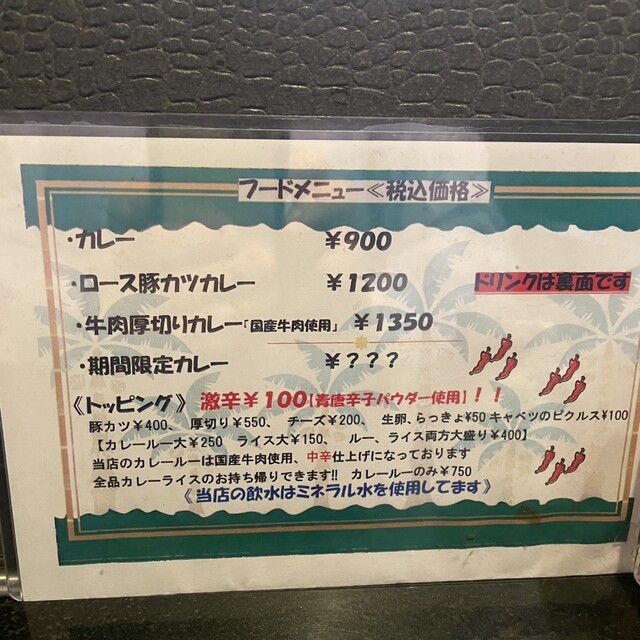 フードメニュー≪税込価格≫
・カレー ￥900
・ロース豚カツカレー ￥1200
ドリンクは裏面です
・牛肉厚切りカレー「国産牛肉使用」 ￥1350
・期間限定カレー ￥？？？
《トッピング》 激辛￥100【青唐辛子パウダー使用】！！
豚カツ￥400、 厚切り￥550、 チーズ￥200、 生卵、らっきょ¥50 キャベツのピクルス¥100
【カレールー大￥250 ライス大￥150、 ルー、ライス両方大盛り￥400】
当店のカレールーは国産牛肉使用、中辛仕上げになっております
全品カレーライスのお持ち帰りできます!! カレールーのみ￥750
《当店の飲水はミネラル水を使用してます》